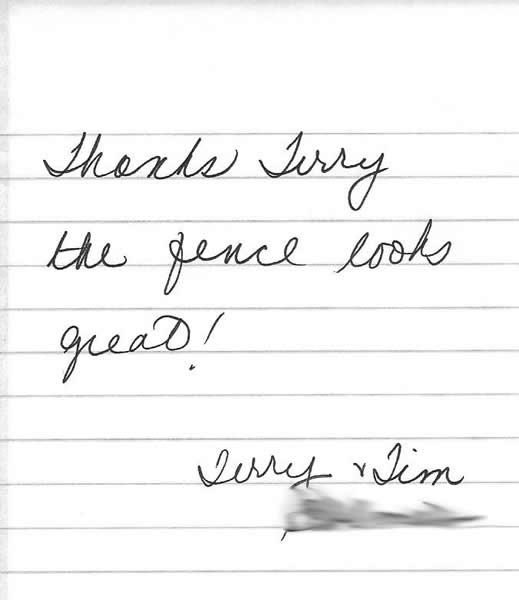 Thanks Terry
the fence looks
great!
Terry & Tim